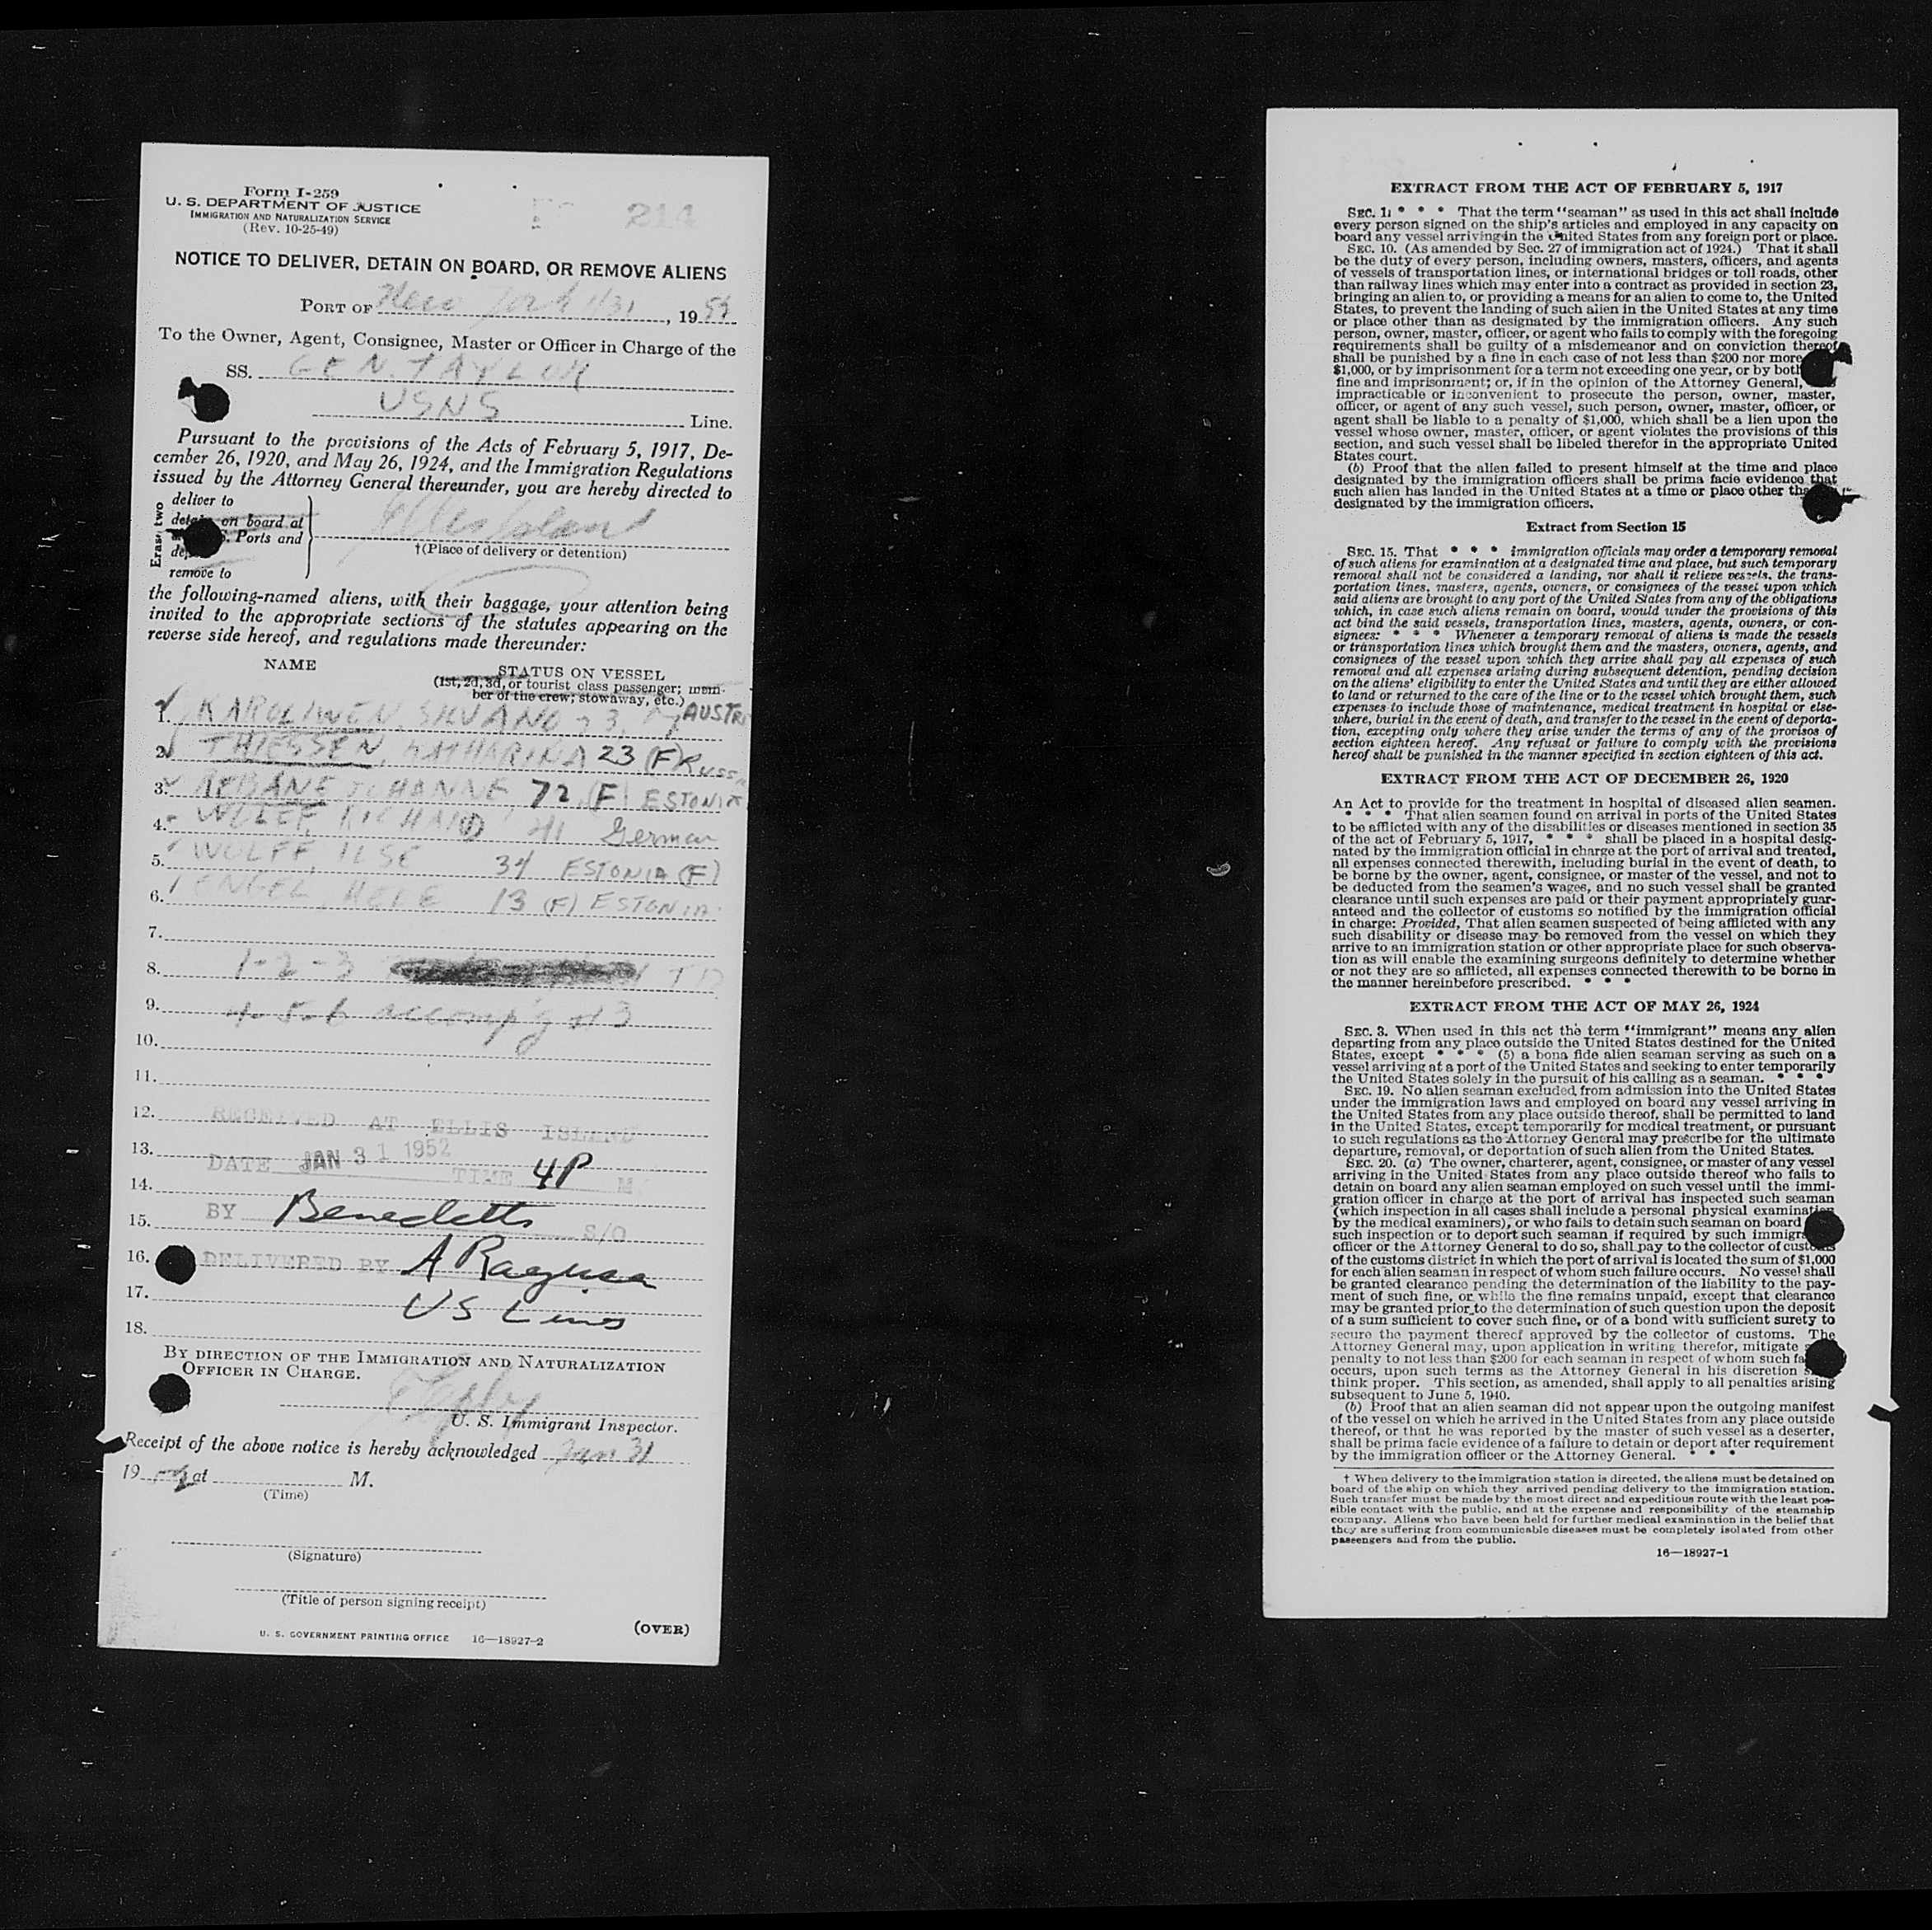 Form I-259
U. S. DEPARTMENT OF JUSTICE
IMMIGRATION AND NATURALIZATION SERVICE
(Rev. 10-25-49)
214
NOTICE TO DELIVER, DETAIN ON BOARD, OR REMOVE ALIENS
PORT OF New York 1/31, 19
To the Owner, Agent, Consignee, Master or Officer in Charge of the
SS. GEN. TAYLOR
USNS Line.
Pursuant to the provisions of the Acts of February 5, 1917, De-
cember 26, 1920, and May 26, 1924, and the Immigration Regulations
issued by the Attorney General thereunder, you are hereby directed to
Erase two
deliver to
detain on board at
Ports and
remove to
Ellis Island
†(Place of delivery or detention)
the following-named aliens, with their baggage, your attention being
invited to the appropriate sections of the statutes appearing on the
reverse side hereof, and regulations made thereunder:
NAME
STATUS ON VESSEL
(1st, 2d, 3d, or tourist class passenger; mem-
ber of the crew; stowaway, etc.)
1. SILVANO
2. THIESSEN, KATHARINA 23 (F)
3. REBANE JOHANNE 72 (F) ESTONIA
4. RICHARD 41 German
5. WOLFF, ILSE 34 ESTONIA (F)
6. ENGEL, 13 (F) ESTONIA
7.
8. 1-2-3 TD
9. 4-5-6 accomp'g #3
10.
11.
12. RECEIVED AT ELLIS ISLAND
13. DATE JAN 31 1952 TIME 4P M
14.
15. BY S/O
16. DELIVERED BY A Ragusa
17. US Lines
18.
BY DIRECTION OF THE IMMIGRATION AND NATURALIZATION
OFFICER IN CHARGE.
U. S. Immigrant Inspector.
Receipt of the above notice is hereby acknowledged Jan 31
19 at M.
(Time)
(Signature)
(Title of person signing receipt)
(OVER)
U. S. GOVERNMENT PRINTING OFFICE 16—18927-2
EXTRACT FROM THE ACT OF FEBRUARY 5, 1917
SEC. 1. * * * That the term "seaman" as used in this act shall include
every person signed on the ship's articles and employed in any capacity on
board any vessel arriving in the United States from any foreign port or place.
SEC. 10. (As amended by Sec. 27 of immigration act of 1924.) That it shall
be the duty of every person, including owners, masters, officers, and agents
of vessels of transportation lines, or international bridges or toll roads, other
than railway lines which may enter into a contract as provided in section 23,
bringing an alien to, or providing a means for an alien to come to, the United
States, to prevent the landing of such alien in the United States at any time
or place other than as designated by the immigration officers. Any such
person, owner, master, officer, or agent who fails to comply with the foregoing
requirements shall be guilty of a misdemeanor and on conviction thereof
shall be punished by a fine in each case of not less than $200 nor more
$1,000, or by imprisonment for a term not exceeding one year, or by both
fine and imprisonment; or, if in the opinion of the Attorney General,
impracticable or inconvenient to prosecute the person, owner, master,
officer, or agent of any such vessel, such person, owner, master, officer, or
agent shall be liable to a penalty of $1,000, which shall be a lien upon the
vessel whose owner, master, officer, or agent violates the provisions of this
section, and such vessel shall be libeled therefor in the appropriate United
States court.
(b) Proof that the alien failed to present himself at the time and place
designated by the immigration officers shall be prima facie evidence that
such alien has landed in the United States at a time or place other
designated by the immigration officers.
Extract from Section 15
SEC. 15. That * * * immigration officials may order a temporary removal
of such aliens for examination at a designated time and place, but such temporary
removal shall not be considered a landing, nor shall it relieve vessels, the trans-
portation lines, masters, agents, owners, or consignees of the vessel upon which
said aliens are brought to any port of the United States from any of the obligations
which, in case such aliens remain on board, would under the provisions of this
act bind the said vessels, transportation lines, masters, agents, owners, or con-
signees: * * * Whenever a temporary removal of aliens is made the vessels
or transportation lines which brought them and the masters, owners, agents, and
consignees of the vessel upon which they arrive shall pay all expenses of such
removal and all expenses arising during subsequent detention, pending decision
on the aliens' eligibility to enter the United States and until they are either allowed
to land or returned to the care of the line or to the vessel which brought them, such
expenses to include those of maintenance, medical treatment in hospital or else-
where, burial in the event of death, and transfer to the vessel in the event of deporta-
tion, excepting only where they arise under the terms of any of the provisos of
section eighteen hereof. Any refusal or failure to comply with the provisions
hereof shall be punished in the manner specified in section eighteen of this act.
EXTRACT FROM THE ACT OF DECEMBER 26, 1920
An Act to provide for the treatment in hospital of diseased alien seamen.
* * * That alien seamen found on arrival in ports of the United States
to be afflicted with any of the disabilities or diseases mentioned in section 35
of the act of February 5, 1917, * * * shall be placed in a hospital desig-
nated by the immigration official in charge at the port of arrival and treated,
all expenses connected therewith, including burial in the event of death, to
be borne by the owner, agent, consignee, or master of the vessel, and not to
be deducted from the seamen's wages, and no such vessel shall be granted
clearance until such expenses are paid or their payment appropriately guar-
anteed and the collector of customs so notified by the immigration official
in charge: Provided, That alien seamen suspected of being afflicted with any
such disability or disease may be removed from the vessel on which they
arrive to an immigration station or other appropriate place for such observa-
tion as will enable the examining surgeons definitely to determine whether
or not they are so afflicted, all expenses connected therewith to be borne in
the manner hereinbefore prescribed. * * *
EXTRACT FROM THE ACT OF MAY 26, 1924
SEC. 3. When used in this act the term "immigrant" means any alien
departing from any place outside the United States destined for the United
States, except * * * (5) a bona fide alien seaman serving as such on a
vessel arriving at a port of the United States and seeking to enter temporarily
the United States solely in the pursuit of his calling as a seaman. * * *
SEC. 19. No alien seaman excluded from admission into the United States
under the immigration laws and employed on board any vessel arriving in
the United States from any place outside thereof, shall be permitted to land
in the United States, except temporarily for medical treatment, or pursuant
to such regulations as the Attorney General may prescribe for the ultimate
departure, removal, or deportation of such alien from the United States.
SEC. 20. (a) The owner, charterer, agent, consignee, or master of any vessel
arriving in the United States from any place outside thereof who fails to
detain on board any alien seaman employed on such vessel until the immi-
gration officer in charge at the port of arrival has inspected such seaman
(which inspection in all cases shall include a personal physical examination
by the medical examiners), or who fails to detain such seaman on board
such inspection or to deport such seaman if required by such
officer or the Attorney General to do so, shall pay to the collector of customs
of the customs district in which the port of arrival is located the sum of $1,000
for each alien seaman in respect of whom such failure occurs. No vessel shall
be granted clearance pending the determination of the liability to the pay-
ment of such fine, or while the fine remains unpaid, except that clearance
may be granted prior to the determination of such question upon the deposit
of a sum sufficient to cover such fine, or of a bond with sufficient surety to
secure the payment thereof approved by the collector of customs. The
Attorney General may, upon application in writing therefor, mitigate
penalty to not less than $200 for each seaman in respect of whom such
occurs, upon such terms as the Attorney General in his discretion
think proper. This section, as amended, shall apply to all penalties arising
subsequent to June 5, 1940.
(b) Proof that an alien seaman did not appear upon the outgoing manifest
of the vessel on which he arrived in the United States from any place outside
thereof, or that he was reported by the master of such vessel as a deserter,
shall be prima facie evidence of a failure to detain or deport after requirement
by the immigration officer or the Attorney General. * * *
† When delivery to the immigration station is directed, the aliens must be detained on
board of the ship on which they arrived pending delivery to the immigration station.
Such transfer must be made by the most direct and expeditious route with the least pos-
sible contact with the public, and at the expense and responsibility of the steamship
company. Aliens who have been held for further medical examination in the belief that
they are suffering from communicable diseases must be completely isolated from other
passengers and from the public.
16—18927-1